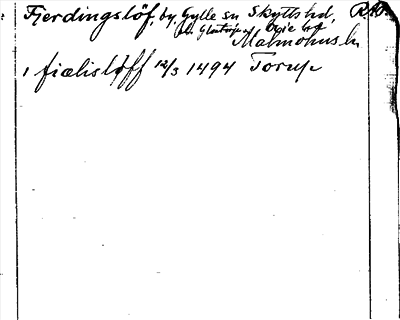 Fjerdingslöf, by, Gylle sn Skytts hd,
Oxie hd
Malmöhus l.
i fiælisløff 12/3 1494 Torup